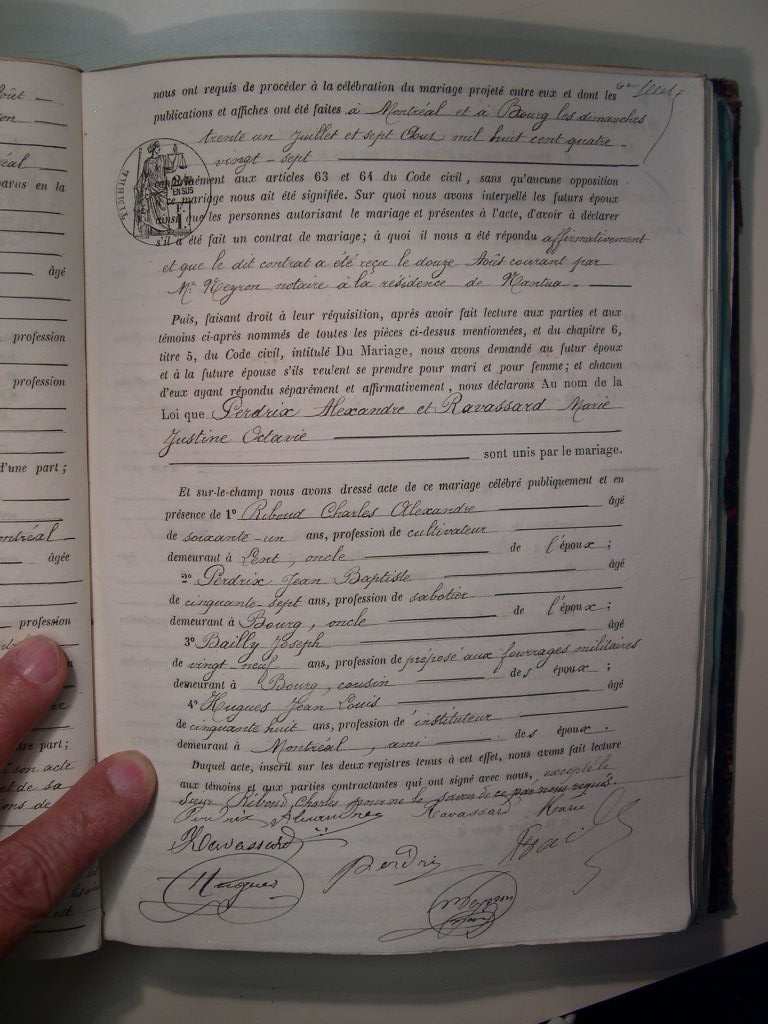 oût
on
éal
parus en la
âgé
profession
profession
d'une part ;
ontréal
âgée
profession
re part ;
son acte
et de sa
ons de
nous ont requis de procéder à la célébration du mariage projeté entre eux et dont les
publications et affiches ont été faites à Montréal et à Bourg les dimanches
trente un Juillet et sept Août mil huit cent quatre
vingt-sept
TIMBRE
EN SUS
conformément aux articles 63 et 64 du Code civil, sans qu'aucune opposition
ce mariage nous ait été signifiée. Sur quoi nous avons interpellé les futurs époux
ainsi que les personnes autorisant le mariage et présentes à l'acte, d'avoir à déclarer
s'il a été fait un contrat de mariage ; à quoi il nous a été répondu affirmativement
et que le dit contrat a été reçu le douze Août courant par
Me Neyron notaire à la résidence de Nantua.
Puis, faisant droit à leur réquisition, après avoir fait lecture aux parties et aux
témoins ci-après nommés de toutes les pièces ci-dessus mentionnées, et du chapitre 6,
titre 5, du Code civil, intitulé Du Mariage, nous avons demandé au futur époux
et à la future épouse s'ils veulent se prendre pour mari et pour femme ; et chacun
d'eux ayant répondu séparément et affirmativement, nous déclarons Au nom de la
Loi que Perdrix Alexandre et Ravassard Marie
Justine Octavie
sont unis par le mariage.
Et sur-le-champ nous avons dressé acte de ce mariage célébré publiquement et en
présence de 1° Riboud Charles Alexandre âgé
de soixante-un ans, profession de cultivateur
demeurant à Lent, oncle de l'époux ;
2° Perdrix Jean Baptiste âgé
de cinquante-sept ans, profession de sabotier
demeurant à Bourg, oncle de l'époux ;
3° Bailly Joseph âgé
de vingt-neuf ans, profession de préposé aux fourrages militaires
demeurant à Bourg, cousin des époux ;
4° Hugues Jean Louis âgé
de cinquante huit ans, profession de instituteur
demeurant à Montréal, ami des époux.
Duquel acte, inscrit sur les deux registres tenus à cet effet, nous avons fait lecture
aux témoins et aux parties contractantes qui ont signé avec nous, excepté le
Sieur Riboud Charles pour ne le savoir de ce par nous requis.
Perdrix Alexandre Ravassard Marie
Ravassard
Hugues Perdrix